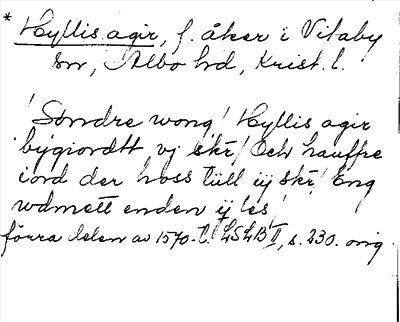 * Hyllis agir, f. åker i Vitaby
sn, Albo hd, Krist. l.
'Søndre wong / Hyllis agir
bygiordtt vj skr / Och hauffre
iord der hoss tüll iij skr / Eng
wdmett enden ij les'
förra delen av 1570-t. LSLB II, s. 230. orig.